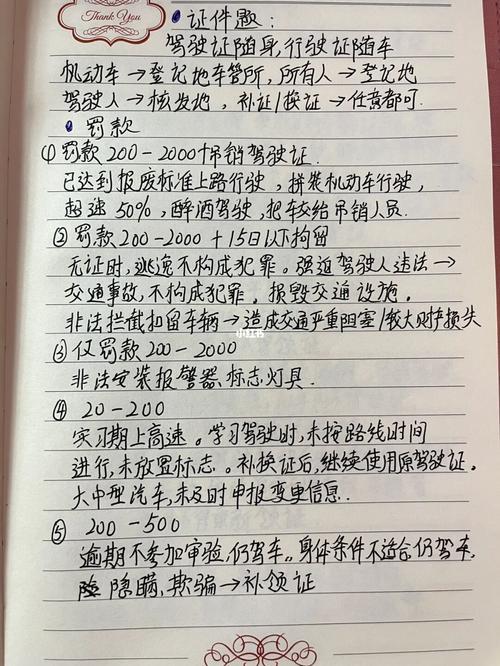 Thank You
• 证件题：
驾驶证随身，行驶证随车
机动车→登记地车管所，所有人→登记地
驾驶人→核发地，补证/换证→任意都可.
• 罚款
① 罚款200-2000+吊销驾驶证.
已达到报废标准上路行驶，拼装机动车行驶，
超速50%，醉酒驾驶，把车交给吊销人员.
② 罚款200-2000+15日以下拘留
无证时，逃逸不构成犯罪。强迫驾驶人违法→
交通事故，不构成犯罪。损毁交通设施。
非法拦截扣留车辆→造成交通严重阻塞/较大财产损失
小红书
③ 仅罚款200-2000
非法安装报警器、标志灯具.
④ 20-200
实习期上高速。学习驾驶时，未按路线时间
进行，未放置标志。补换证后，继续使用原驾驶证。
大中型汽车，未及时申报变更信息.
⑤ 200-500
逾期不参加审验，仍驾车。身体条件不适合，仍驾车.
隐瞒，欺骗→补领证